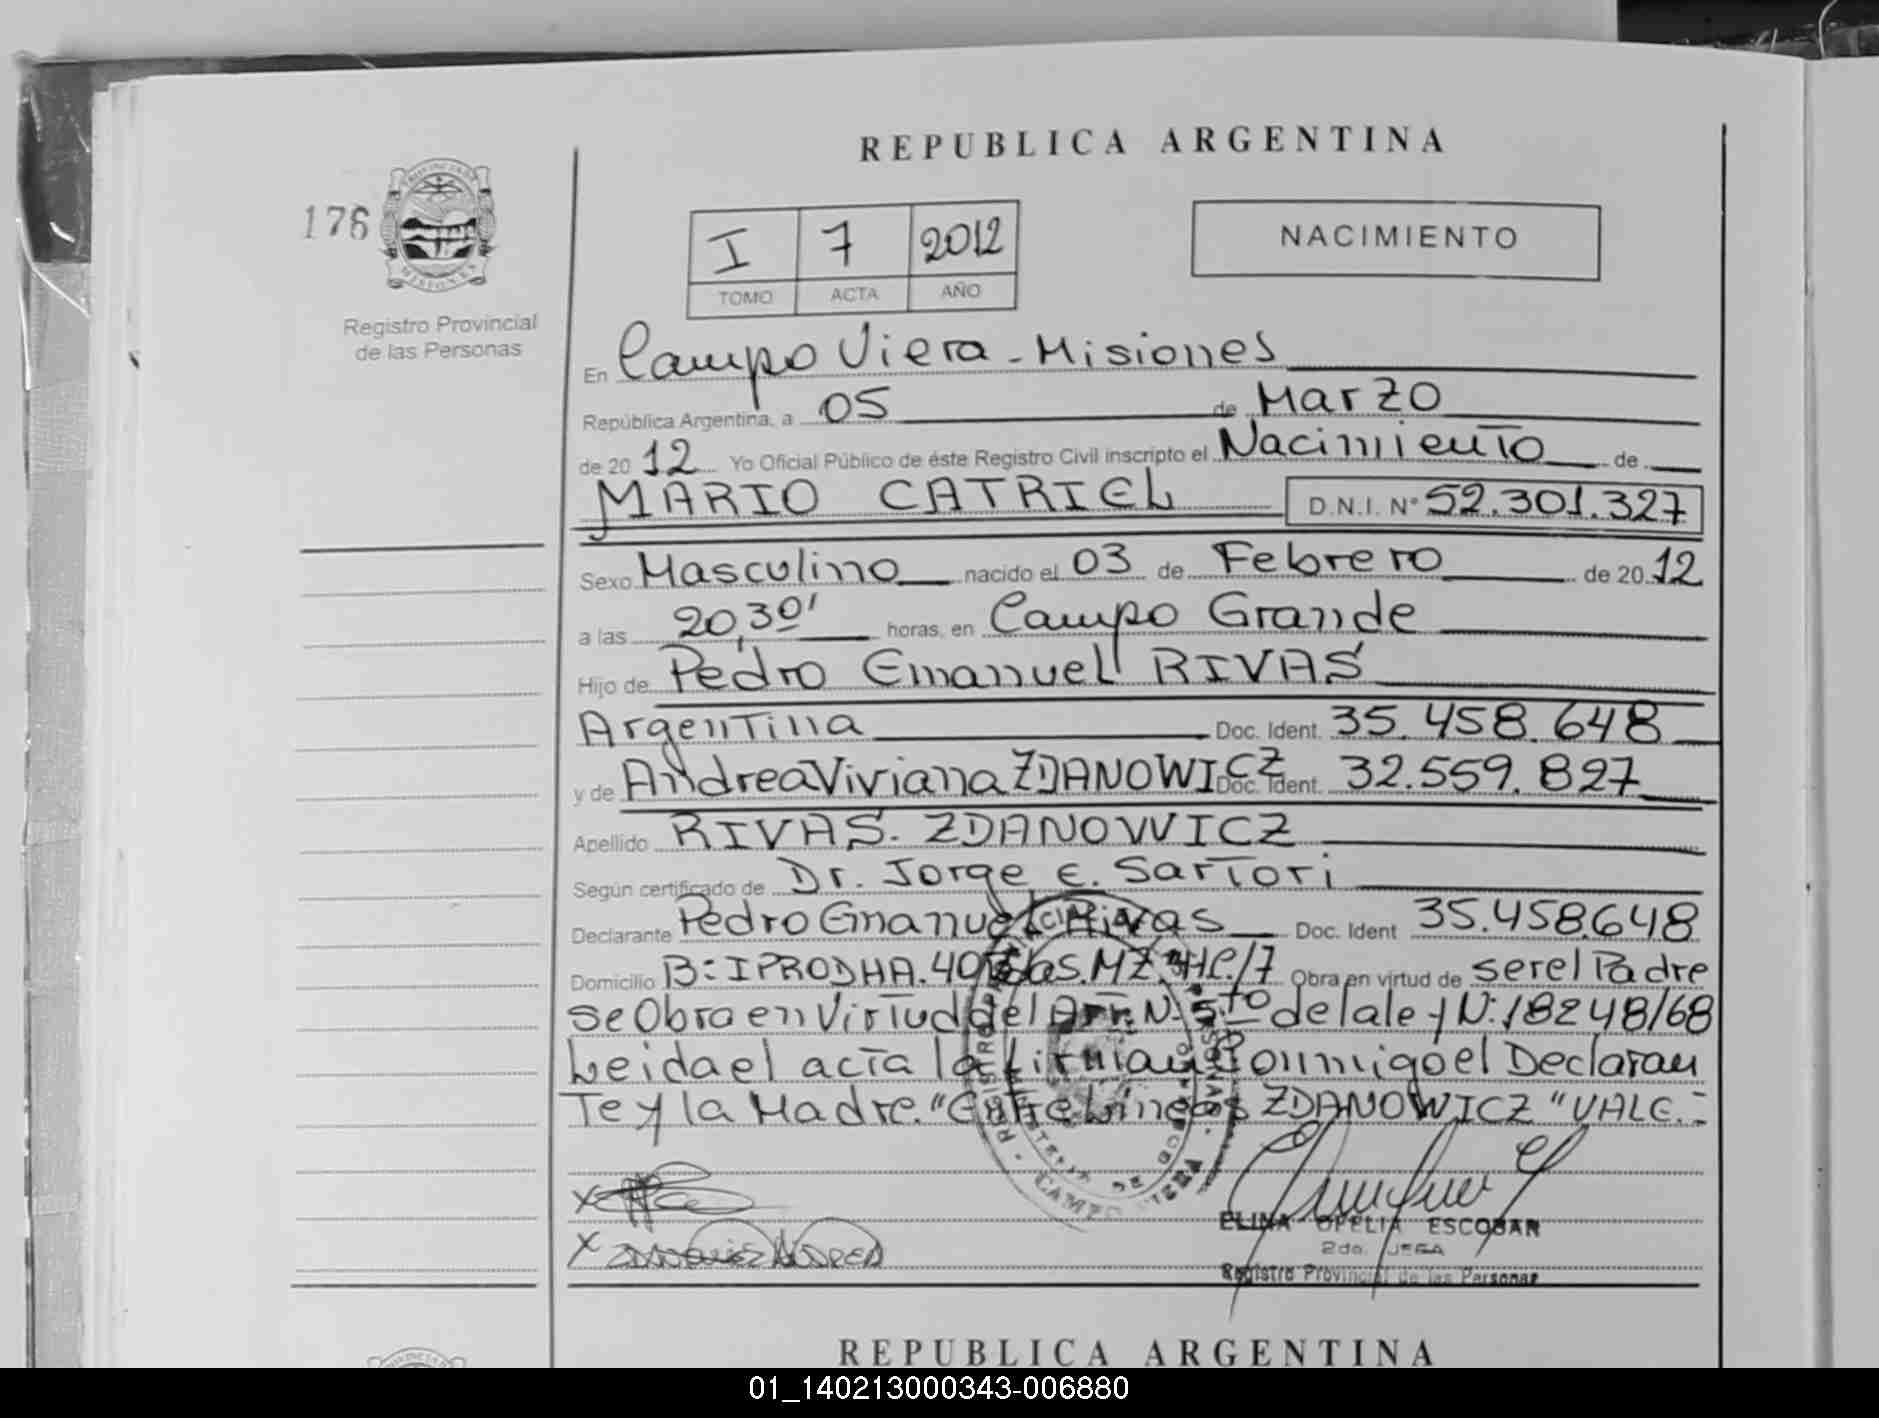 REPUBLICA ARGENTINA
176
PROVINCIA DE
MISIONES
Registro Provincial
de las Personas
I 7 2012
TOMO ACTA AÑO
NACIMIENTO
En Campo Viera - Misiones
República Argentina, a 05 de Marzo
de 2012 Yo Oficial Público de éste Registro Civil inscripto el Nacimiento de
MARIO CATRIEL D.N.I. N° 52.301.327
Sexo Masculino nacido el 03 de Febrero de 2012
a las 20,30' horas, en Campo Grande
Hijo de Pedro Emanuel RIVAS
Argentina Doc. Ident. 35.458.648
y de Andrea Viviana ZDANOWICZ Doc. Ident. 32.559.827
Apellido RIVAS. ZDANOWICZ
Según certificado de Dr. Jorge E. Sartori
Declarante Pedro Emanuel Rivas Doc. Ident 35.458.648
Domicilio B: IPRODHA. 40 MZ. /7 Obra en virtud de ser el Padre
se Obra en Virtud del Art. N: 5to de la ley N: 18248/68
Leida el acta la firman Conmigo el Declaran
Te y la Madre. "Entre Lineas ZDANOWICZ "VALE.-
X
X ANDREA
ELINA OFELIA ESCOBAR
2do. JEFA
Registro Provincial de las Personas
REPUBLICA ARGENTINA
01_140213000343-006880